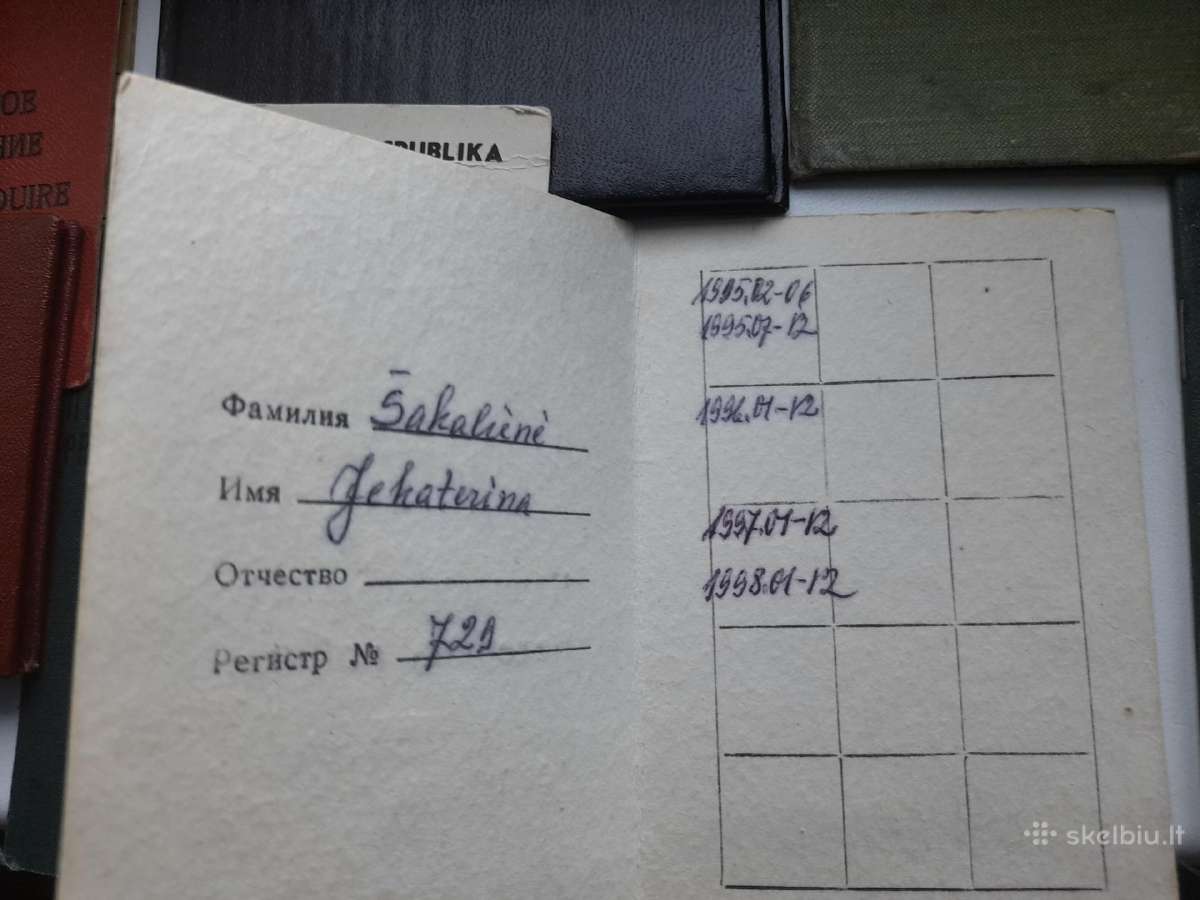 ОЕ
НИЕ
DUIRE
PUBLIKA
Фамилия Šakalienė
Имя Jekaterina
Отчество
Регистр № 729
1995.02-06
1995.07-12
1996.01-12
1997.01-12
1998.01-12
skelbiu.lt